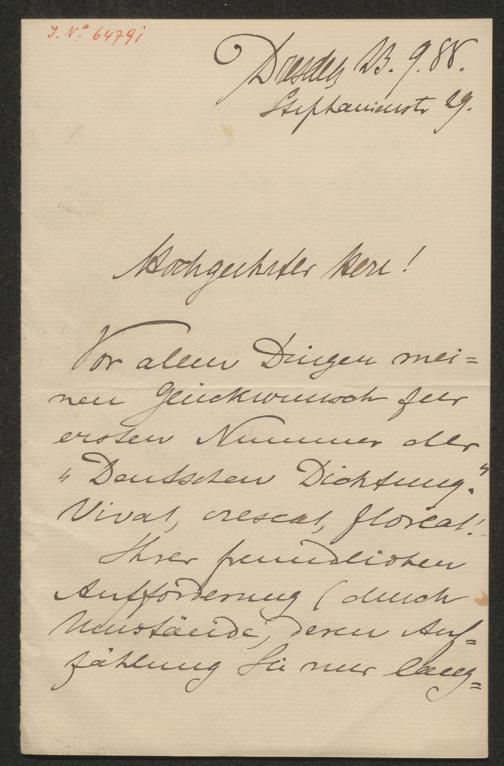 J. No 64791
Dresden 23. 9. 88.
Stephanienstr 29.
Hochgeehrter Herr!
Vor allen Dingen mei=
nen Glückwunsch zur
ersten Nummer der
"Deutschen Dichtung."
Vivat, crescat, floreat!
Ihrer freundlichen
Aufforderung (durch
Umstände, deren Auf=
zählung Sie nur lang=